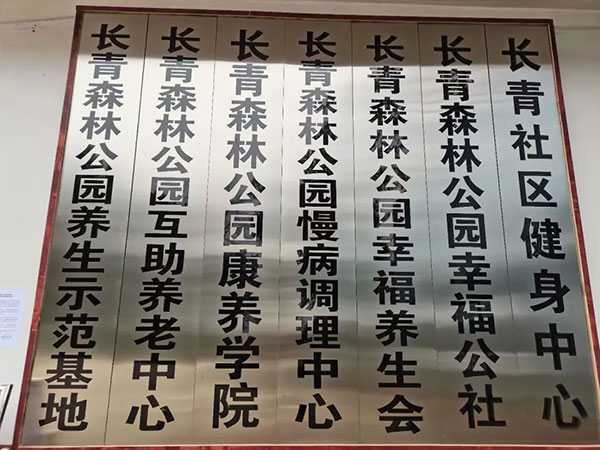 长青社区健身中心
长青森林公园幸福公社
长青森林公园幸福养生会
长青森林公园慢病调理中心
长青森林公园康养学院
长青森林公园互助养老中心
长青森林公园养生示范基地